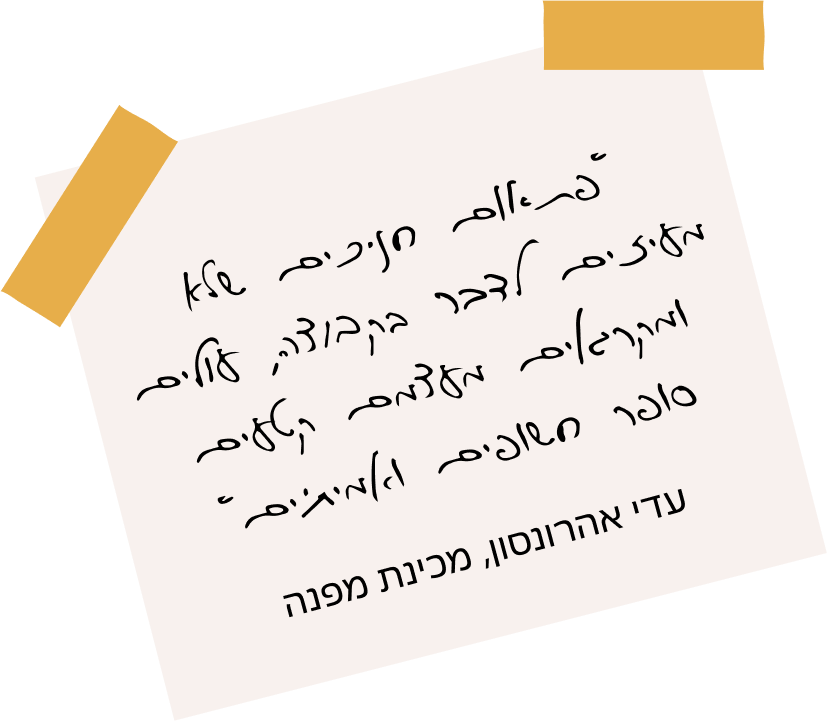 "פתאום חניכים שלא
מעיזים לדבר בקבוצה, עולים
ומקריאים מעצמם קטעים
סופר חשופים ואמיתיים"
עדי אהרונסון, מכינת מפנה